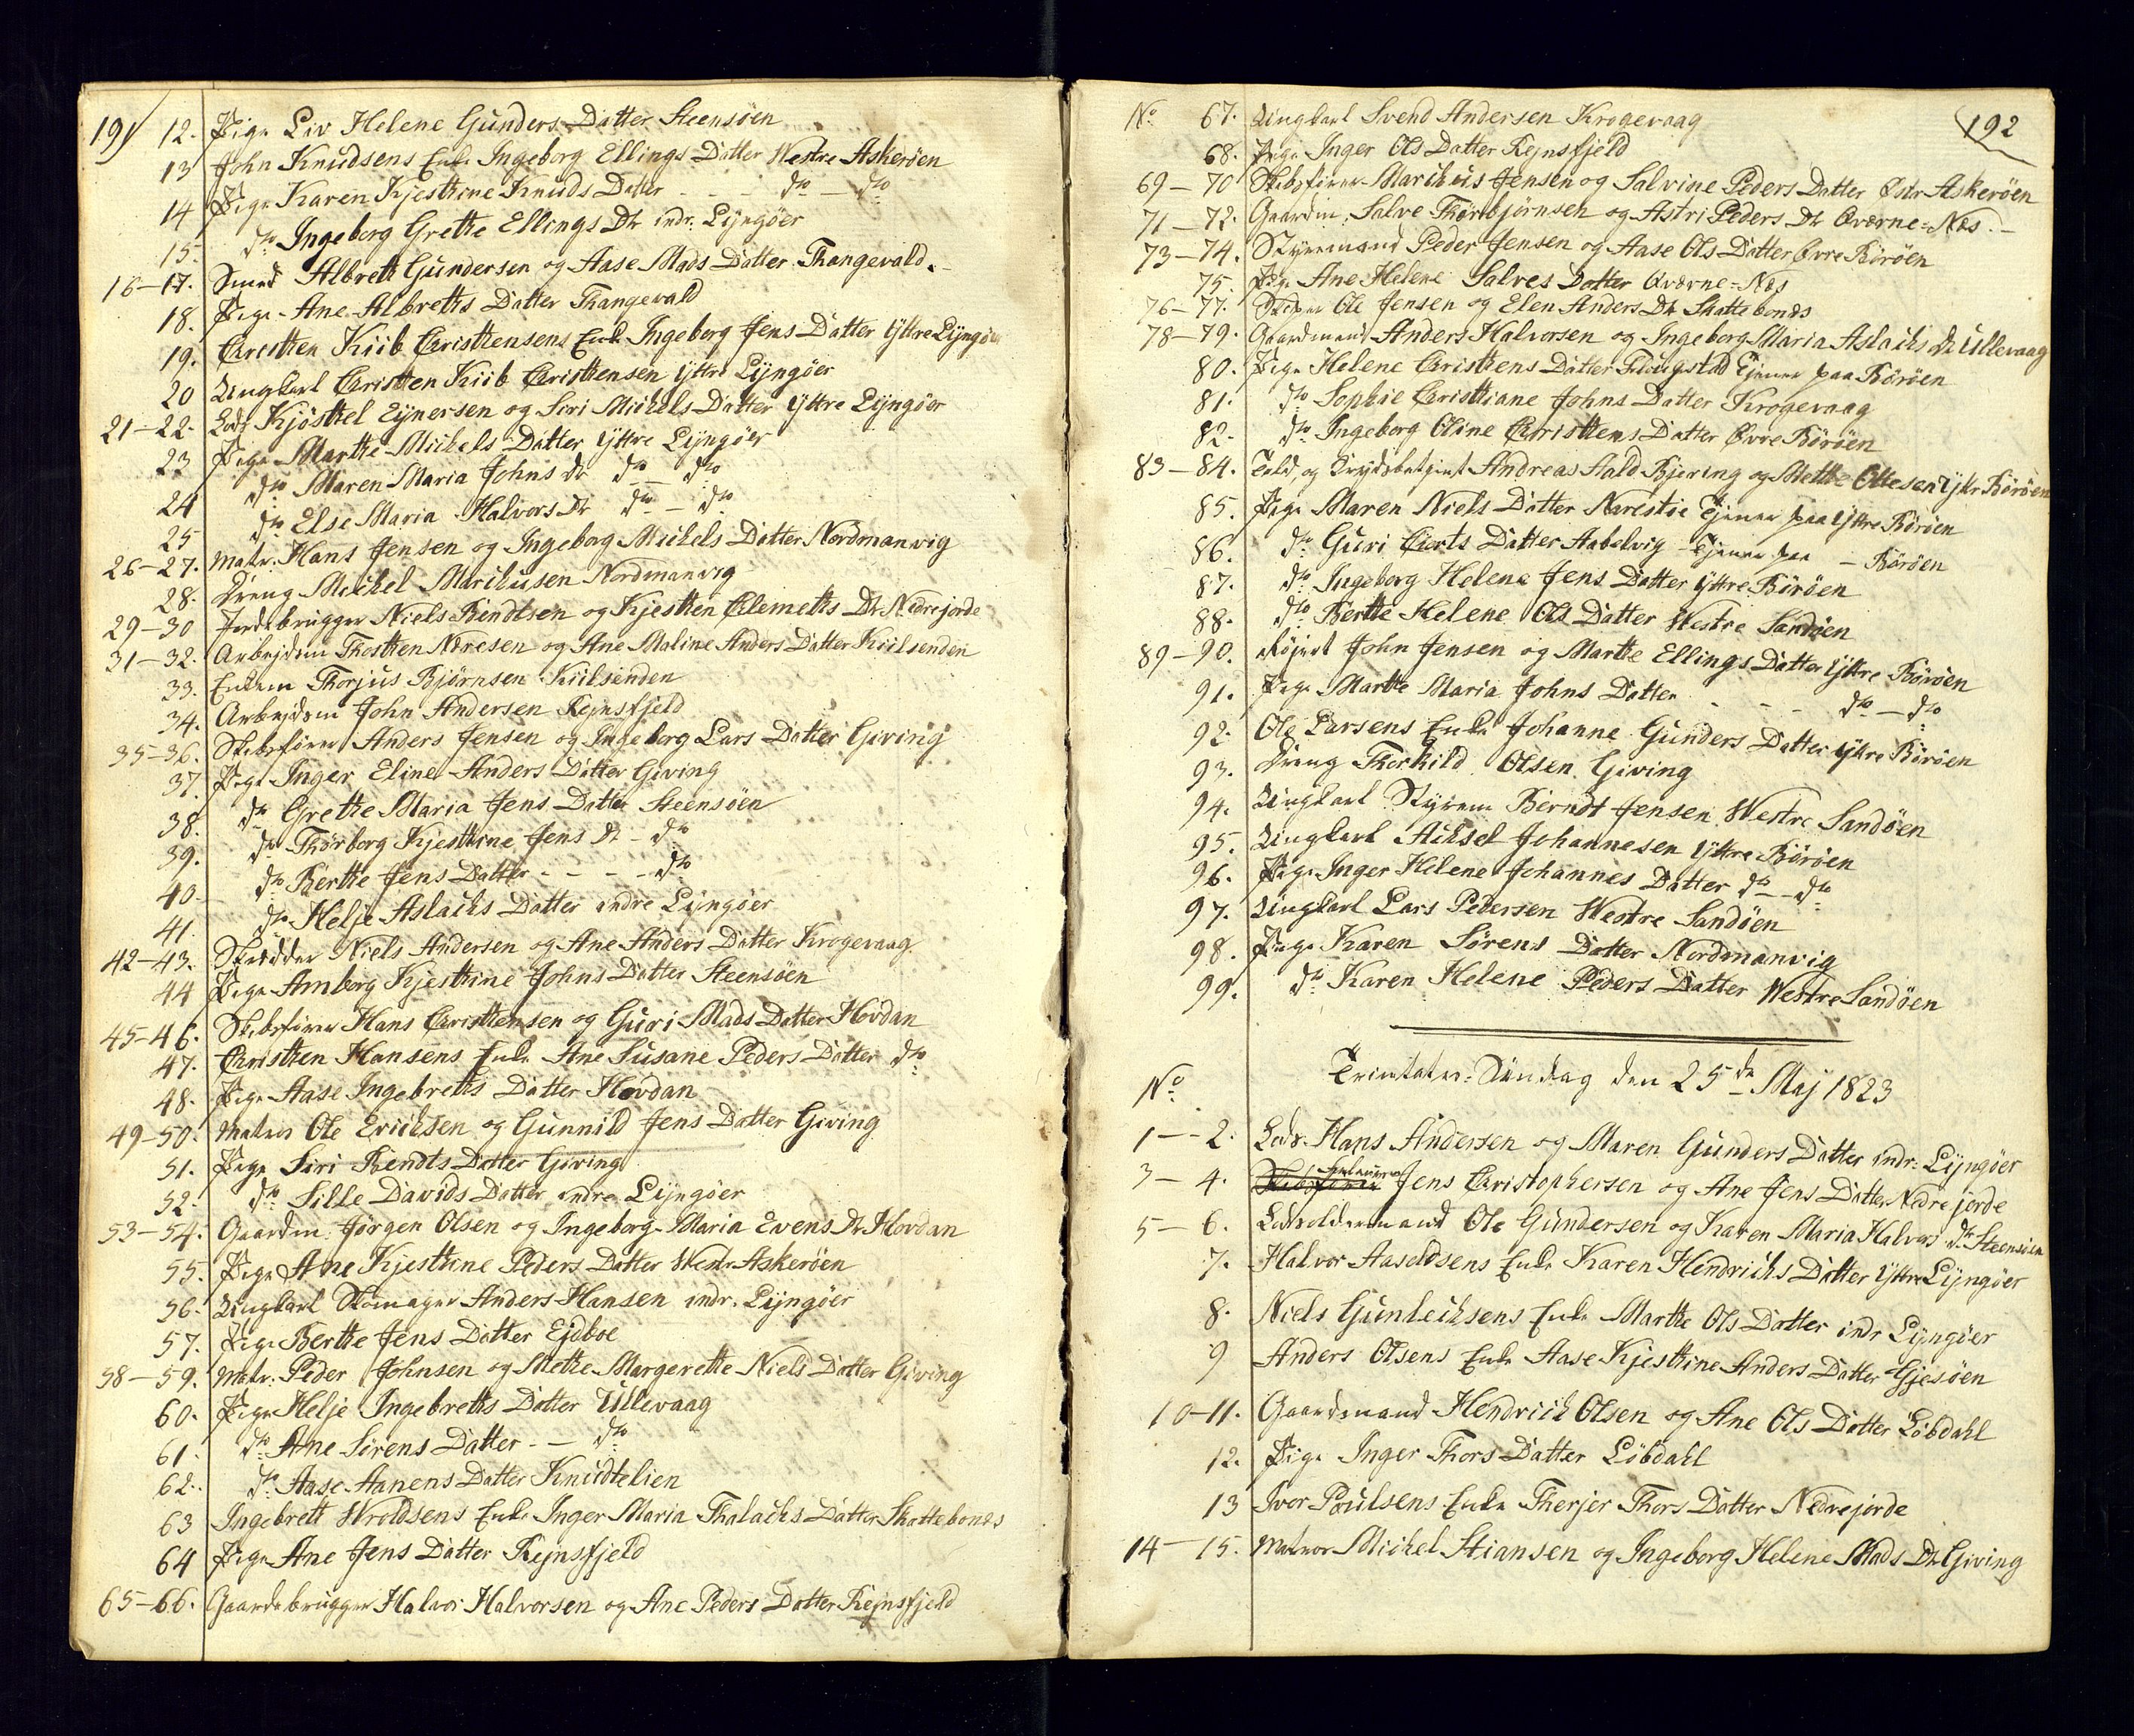 191
12. Pige Liv Helene Gunders Datter Steensöen
13 John Knudsens Enke Ingeborg Ellings Datter Westre Askeröen
14 Pige Karen Kjesthine Knuds Datter - - - do — do
15. do Ingeborg Grethe Ellings Dr indr. Lyngöer
16-17. Smed Albreth Gundersen og Aase Mads Datter Thangevald.
18. Pige Ane Albreths Datter Thangevald
19. Christhen Kiib Christhensens Enke Ingeborg Jens Datter Yttre Lyngöer
20 Ungkarl Christhen Kiib Christhensen Yttre Lyngöer
21-22. Lods Kjösthel Eynersen og Siri Michels Datter Yttre Lyngöer
23 Pige Marthe Michels Datter Yttre Lyngöer
24 do Maren Maria Johns Dr do — do
25 do Else Maria Halvors Dr do — do
26-27. Matr. Hans Jensen og Ingeborg Michels Datter Nordmanvig
28. Dreng Michel Marikusen Nordmanvig
29-30 Jordebrugger Niels Bendtsen og Kjesthen Clemeths Dr Nedrejorde
31-32. Arbejdsm Thosthen Næresen og Ane Maline Anders Datter Kiilsenden
33. Enkem Thorjus Björnsen Kiilsenden
34. Arbejdsm John Andersen Rejnsfjeld
35-36. Skibsförer Anders Jensen og Ingeborg Lars Datter Giving
37. Pige Inger Eline Anders Datter Giving
38. do Grethe Maria Jens Datter Steensöen
39. do Thorborg Kjesthine Jens Dr - do
40. do Berthe Jens Datter - - - - do
41. do Helje Aslachs Datter indre Lyngöer
42-43. Skrædder Niels Andersen og Ane Anders Datter Krogevaag
44 Pige Amborg Kjesthine Johns Datter Steensöen
45-46. Skibsförer Hans Christhensen og Guri Mads Datter Hovdan
47. Christhen Hansens Enke Ane Susane Peders Datter do
48. Pige Aase Ingebreths Datter Hovdan
49-50. Matros Ole Erichsen og Gunnild Jens Datter Giving
51. Pige Siri Bendts Datter Giving
52. do Sille Davids Datter indre Lyngöer
53-54. Gaardm: Jörgen Olsen og Ingeborg Maria Evens Dr Hovdan
55. Pige Ane Kjesthine Peders Datter Westr Askeröen
56. Ungkarl Skomager Anders Hansen indr. Lyngöer
57. Pige Berthe Jens Datter Ejdboe
58-59. Matr. Peder Johnsen og Methe Margerethe Niels Datter Giving
60. Pige Helje Ingebreths Datter Ullevaag
61. do Ane Sirens Datter - — do
62. do Aase Aanens Datter Knudtelien
63 Ingebrett Wroldsens Enke Inger Maria Thalachs Datter Skattebonds
64 Pige Ane Jens Datter Rejnsfjeld
65-66. Gaardebrugger Halvor Halvorsen og Ane Peders Datter Rejnsfjeld
192
No 67. Ungkarl Svend Andersen Krogevaag
68. Pige Inger Ols Datter Rejnsfjeld
69-70 Skibsförer Marikus Jensen og Salvine Peders Datter Østr Askeröen
71-72. Gaardm. Salve Thorbjörnsen og Astri Peders Dr Qværne-Næs.
73-74. Styrmand Peder Jensen og Aase Ols Datter Øvre Böröen
75. Pige Ane Helene Salves Datter Qværne-Næs
76-77. Skiper Ole Jensen og Elen Anders Dr Skattebonds
78-79. Gaardmand Anders Halvorsen og Ingeborg Maria Aslachs Dr Ullevaag
80. Pige Helene Christhens Datter Tjener paa Böröen
81. do Sophie Christhiane Johns Datter Krogevaag
82. do Ingeborg Oline Christhens Datter Øvre Böröen
83-84. Told, og Krydsbetjent Andreas Aald Bjering og Methe Ottesen Yttr Böröen
85. Pige Maren Niels Datter Narestöe Tjener paa Yttre Böröen
86. do Guri Gierts Datter Aabelvig Tjener paa - Böröen
87. do Ingeborg Helene Jens Datter Yttre Böröen
88. do Berthe Helene Ols Datter Westre Sandöen
89-90. John Jensen og Marthe Ellings Datter Yttre Böröen
91. Pige Marthe Maria Johns Datter - - - do — do
92. Ole Larsens Enke Johanne Gunders Datter Yttre Böröen
93. Dreng Thorkild Olsen Giving
94. Ungkarl Styrem Berndt Jensen Westre Sandöen
95. Ungkarl Achsel Johannesen Yttre Böröen
96. Pige Inger Helene Johannes Datter do — do
97. Ungkarl Lars Pedersen Westre Sandöen
98. Pige Karen Sörens Datter Nordmanvig
99. do Karen Helene Peders Datter Westre Sandöen
No Trinitatis: Söndag den 25de Maj 1823
1--2. Lods. Hans Andersen og Maren Gunders Datter indr: Lyngöer
3-4. Jens Christophersen og Ane Jens Datter Nedrejorde
5-6. Lodsoldermand Ole Gundersen og Karen Maria Halvors Dr Steensöen
7. Halvor Aaseldsens Enke Karen Hendrichs Datter Yttre Lyngöer
8. Niels Gunleichsens Enke Marthe Ols Datter indr Lyngöer
9 Anders Olsens Enke Aase Kjesthine Anders Datter Gjesöen
10-11. Gaardmand Hendrich Olsen og Ane Ols Datter Löbdahl
12. Pige Inger Thors Datter Löbdahl
13 Iver Poulsens Enke Therjer Thors Datter Nedrejorde
14-15. Matros Michel Stiansen og Ingeborg Helene Mads Dr Giving